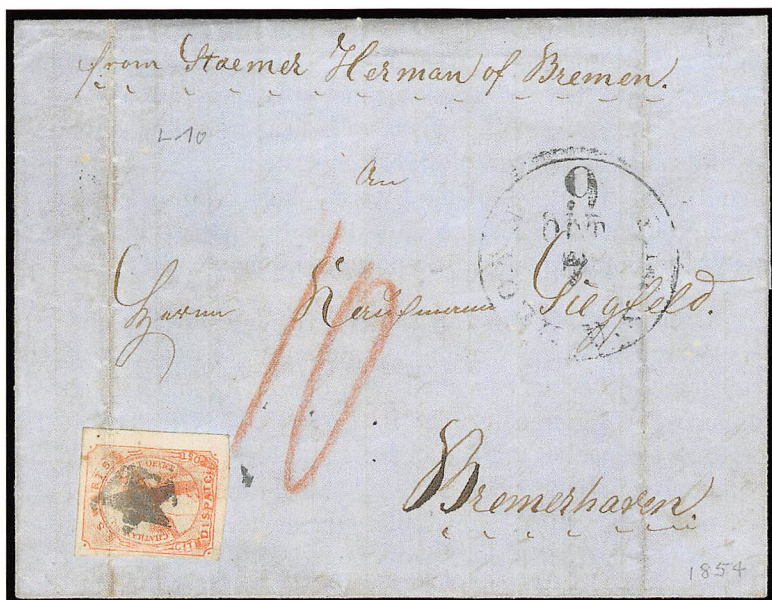 from Staemer Herman of Bremen.
L 10
An
Herrn Kaufmann Siegfeld.
10
9
Bremerhaven.
DISPATCH
CHATHAM
1854